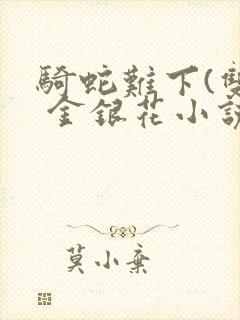 騎蛇難下(雙
金銀花小說
莫小棄